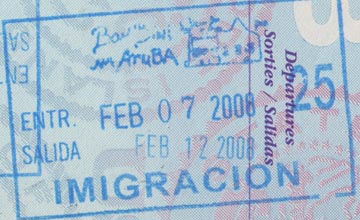 Bon Bini
na Aruba
25
ENTR. FEB 07 2008
SALIDA FEB 12 2008
IMIGRACION
Departures
Sorties / Salidas